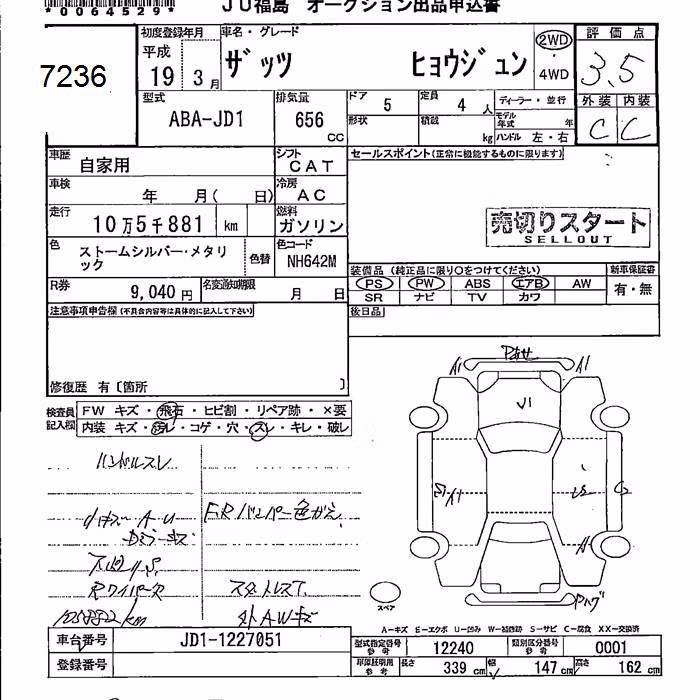 *0064529*
JU福島 オークション出品申込書
7236
初度登録年月 車名・グレード
平成 19年 3月 ザッツ ヒョウジュン 2WD ・ 4WD
評価点 3.5
型式 ABA-JD1 排気量 656 CC ドア 5 定員 4 人 ディーラー・並行
形状 積載 kg モデル年式 年 ハンドル 左・右
外装 内装
C C
車歴 自家用 シフト CAT セールスポイント(正常に機能するものに限ります)
車検 年 月( 日) 冷房 AC
走行 10万5千881 km 燃料 ガソリン
売切りスタート
SELLOUT
色 ストームシルバー・メタリック 色替 色コード NH642M
R券 9,040円 名変通知期限 月 日
装備品(純正品に限り○をつけてください) 新車保証書
PS PW ABS エアB AW 有・無
SR ナビ TV カワ
注意事項申告欄(不具合内容等は具体的に記入して下さい) 後日品
修復歴 有〔箇所 〕
検査員記入欄
FW キズ・飛石・ヒビ割・リペア跡・×要
内装 キズ・汚レ・コゲ・穴・スレ・キレ・破レ
ハンドルスレ
A1 A1
U1
F.Rバンパー色がえ
スタットレスT.
外AWキズ
105882km
スペア
A-キズ E-エクボ U-凹み W-補修跡 S-サビ C-腐食 XX-交換済
車台番号 JD1-1227051
登録番号
型式指定番号 参考 12240 類別区分番号 参考 0001
車庫証明用 参考 長さ 339 cm 幅 147 cm 高さ 162 cm